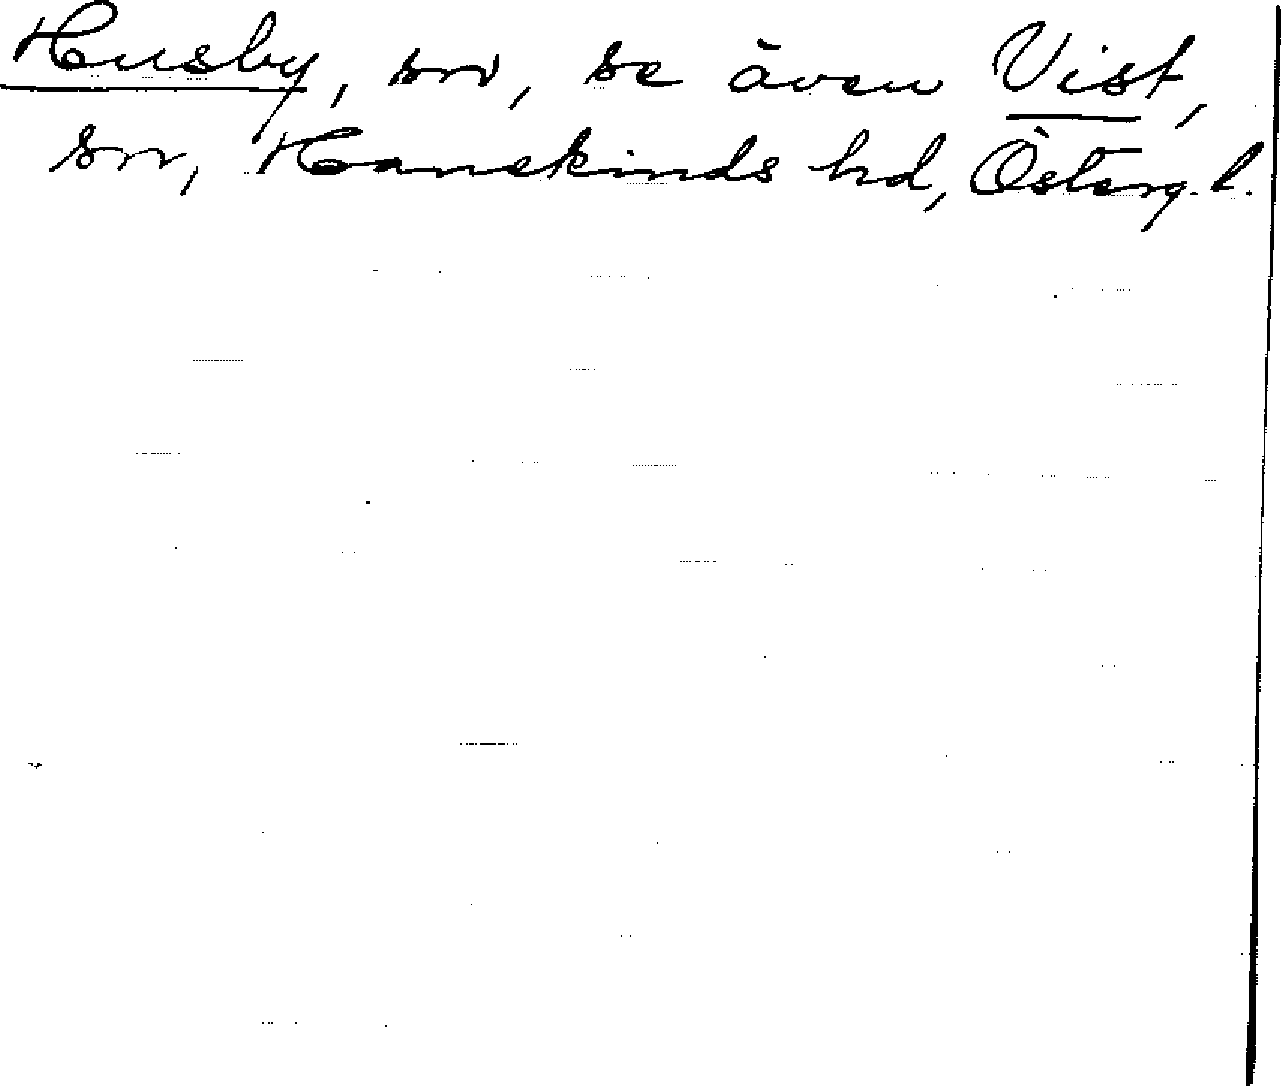 Husby, sn, se även Vist,
sn, Hanekinds hd, Österg. l.